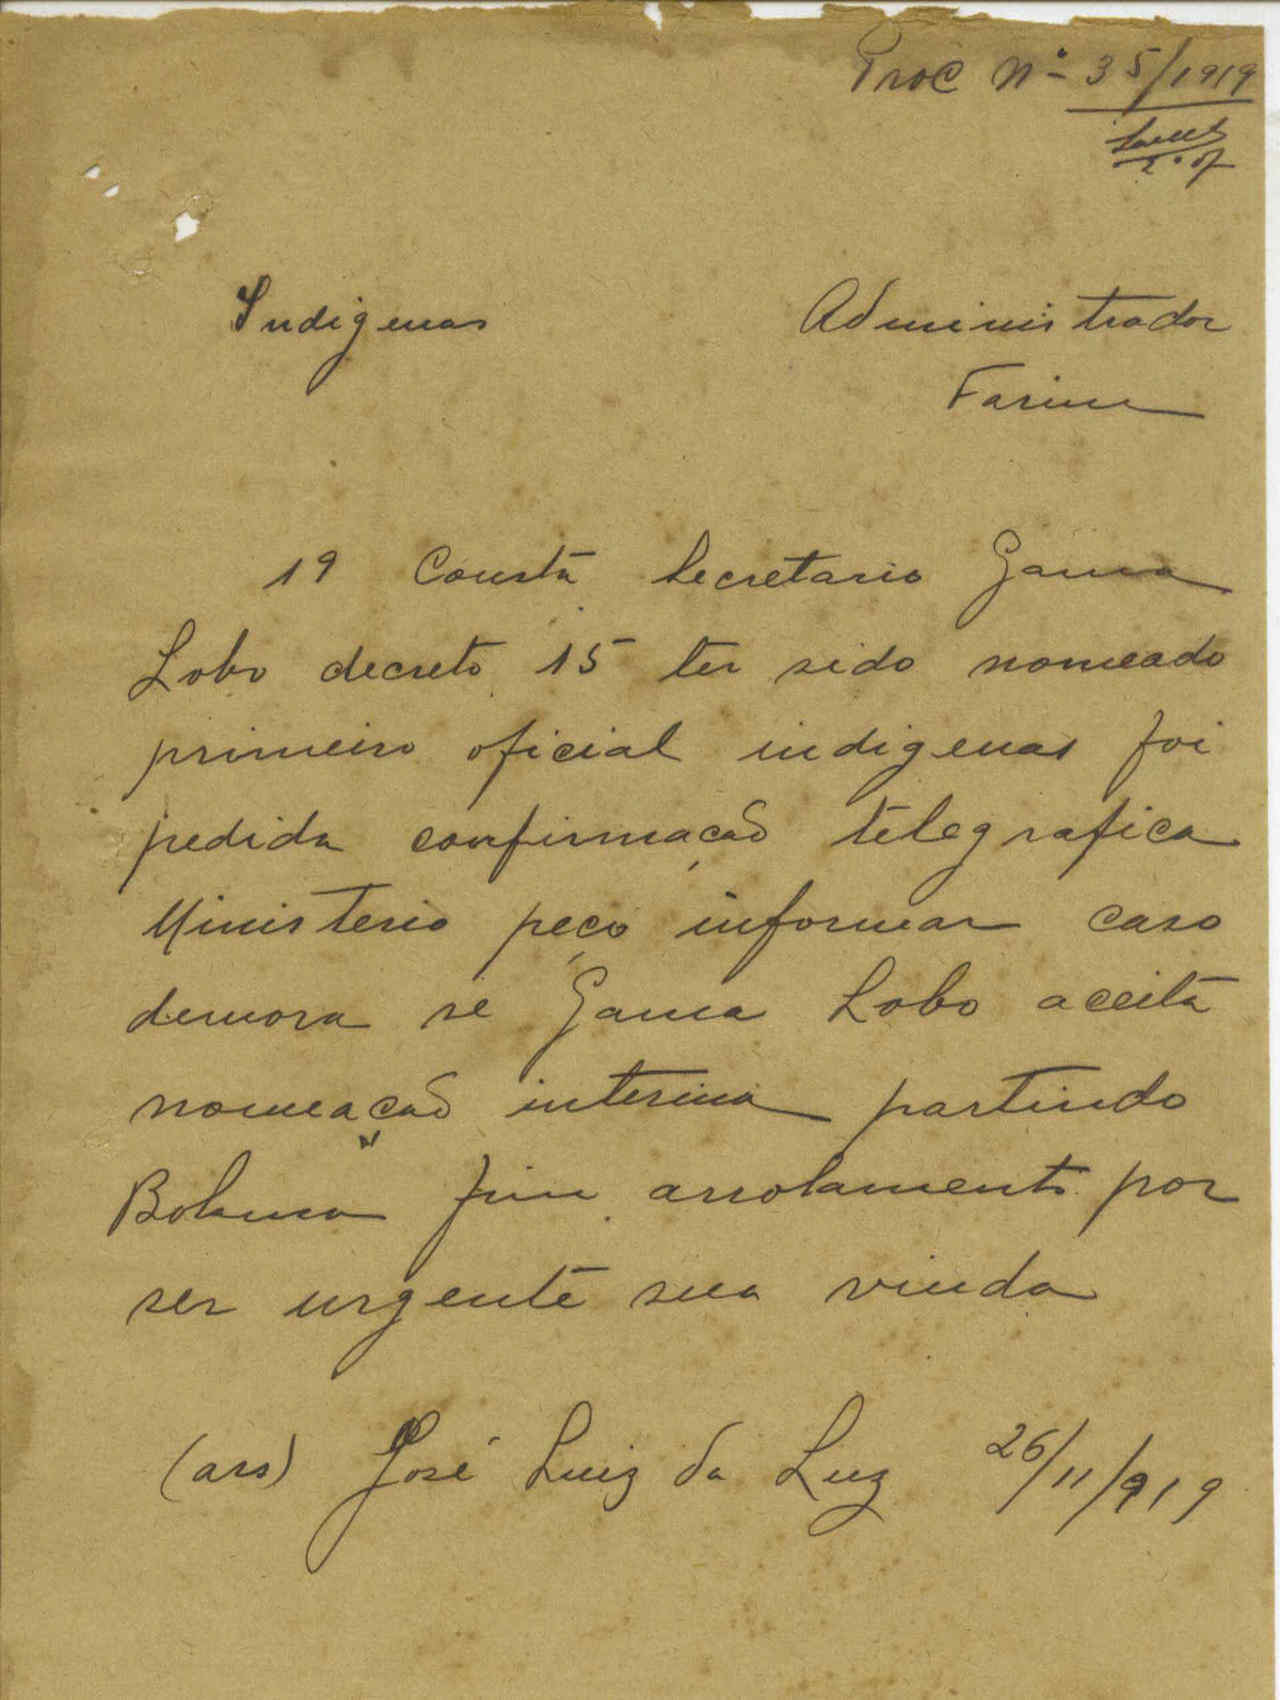 Proc Nº 35/1919
2º of
Indigenas Administrador
Farim
19 Consta Secretario Gama
Lobo decreto 15 ter sido nomeado
primeiro oficial indigenas foi
pedida confirmação telegrafica
Ministerio peço informar caso
demora se Gama Lobo aceita
nomeação interina partindo
Bolama fim arrolamento por
ser urgente sua vinda
(ass) José Luiz da Luz 26/11/919